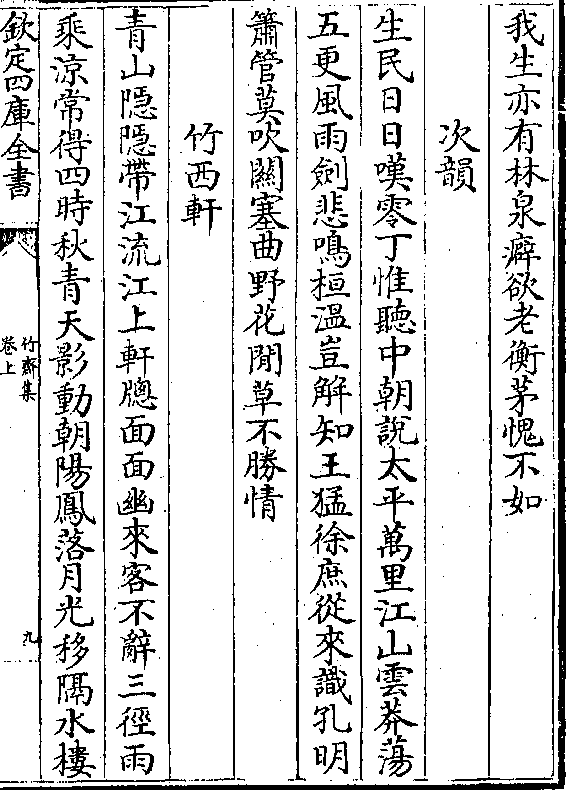 我生亦有林泉癖欲老衡茅愧不如
次韻
生民日日嘆零丁惟聽中朝說太平萬里江山雲莽蕩
五更風雨劍悲鳴桓溫豈解知王猛徐庶從來識孔明
簫管莫吹關塞曲野花閒草不勝情
竹西軒
青山隱隱帶江流江上軒牕面面幽來客不辭三徑雨
乘涼常得四時秋青天影動朝陽鳳落月光移隔水樓
欽定四庫全書
竹齋集
卷上
九